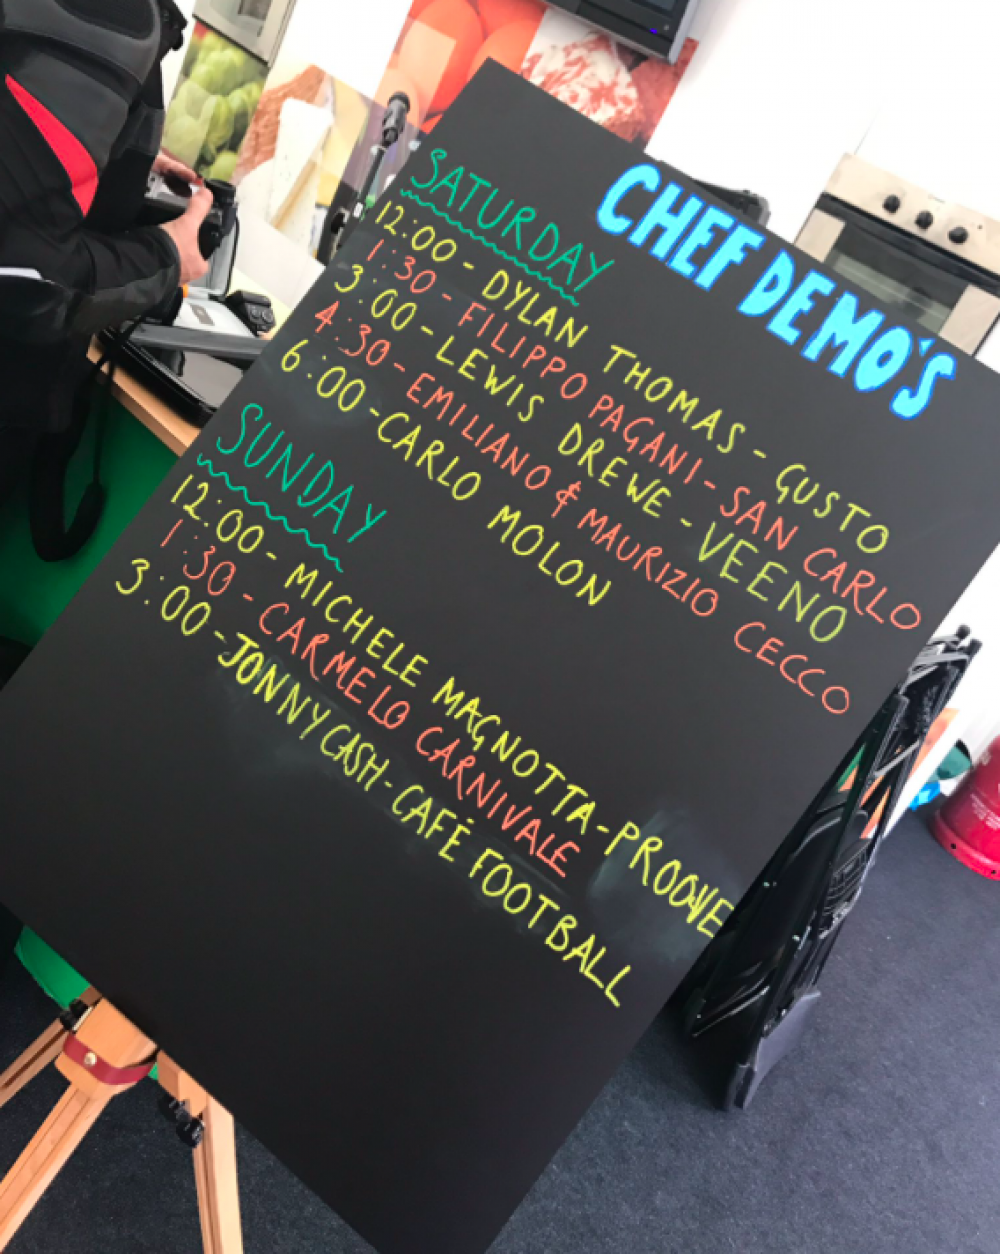 CHEF DEMO'S
SATURDAY
12:00 - DYLAN THOMAS - GUSTO
1:30 - FILIPPO PAGANI - SAN CARLO
3:00 - LEWIS DREWE - VEENO
4:30 - EMILIANO & MAURIZIO CECCO
6:00 - CARLO MOLON
SUNDAY
12:00 - MICHELE MAGNOTTA - PROOVE
1:30 - CARMELO CARNIVALE
3:00 - JONNY CASH - CAFÉ FOOTBALL